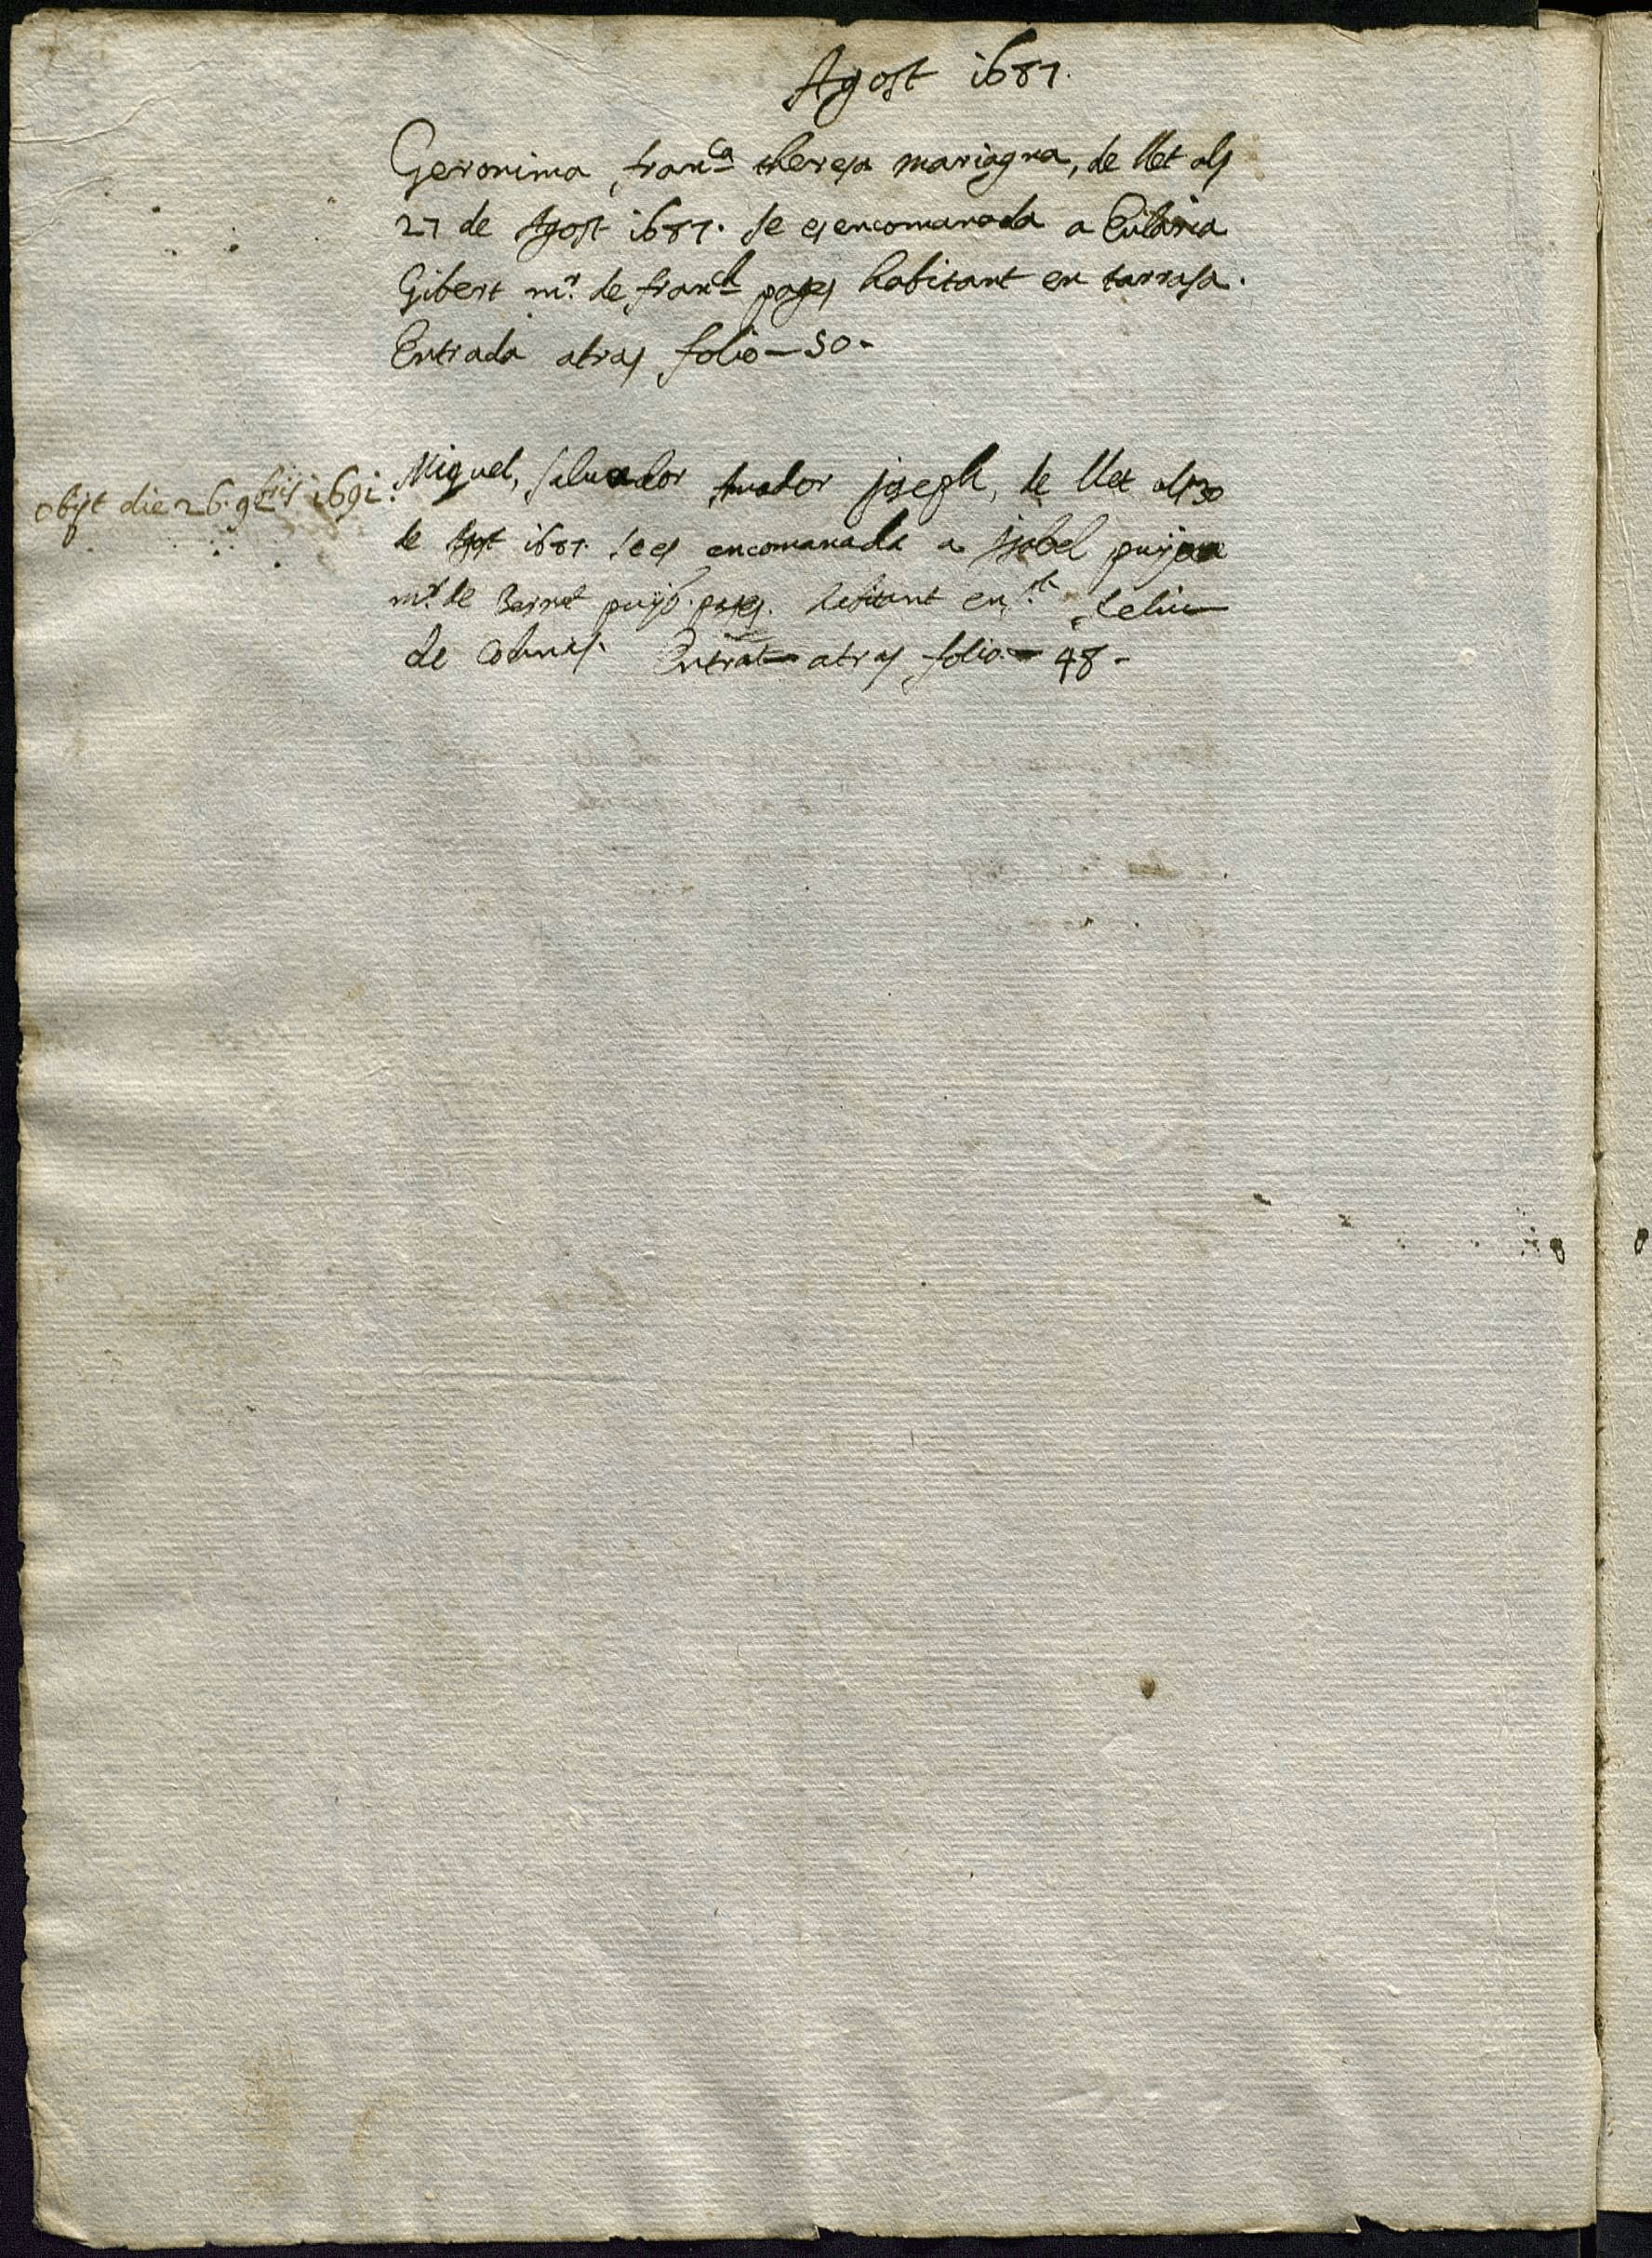 Agost 1687.
Geronima, fran.ca theresa mariagna, de llet als
27 de Agost 1687. se es encomanada a Eularia
Gibert mr. de fran.ch pages habitant en tarrasa.
Entrada atras folio - 50 -
obijt die 26. 9bris 1691.
Miguel, saluador amador joseph, de llet als 30
de Agst 1687. se es encomanada a Isabel
mr. de Bernat puijb. pages. habitant en st. feliu
de Codines. Entrat atras folio - 48 -